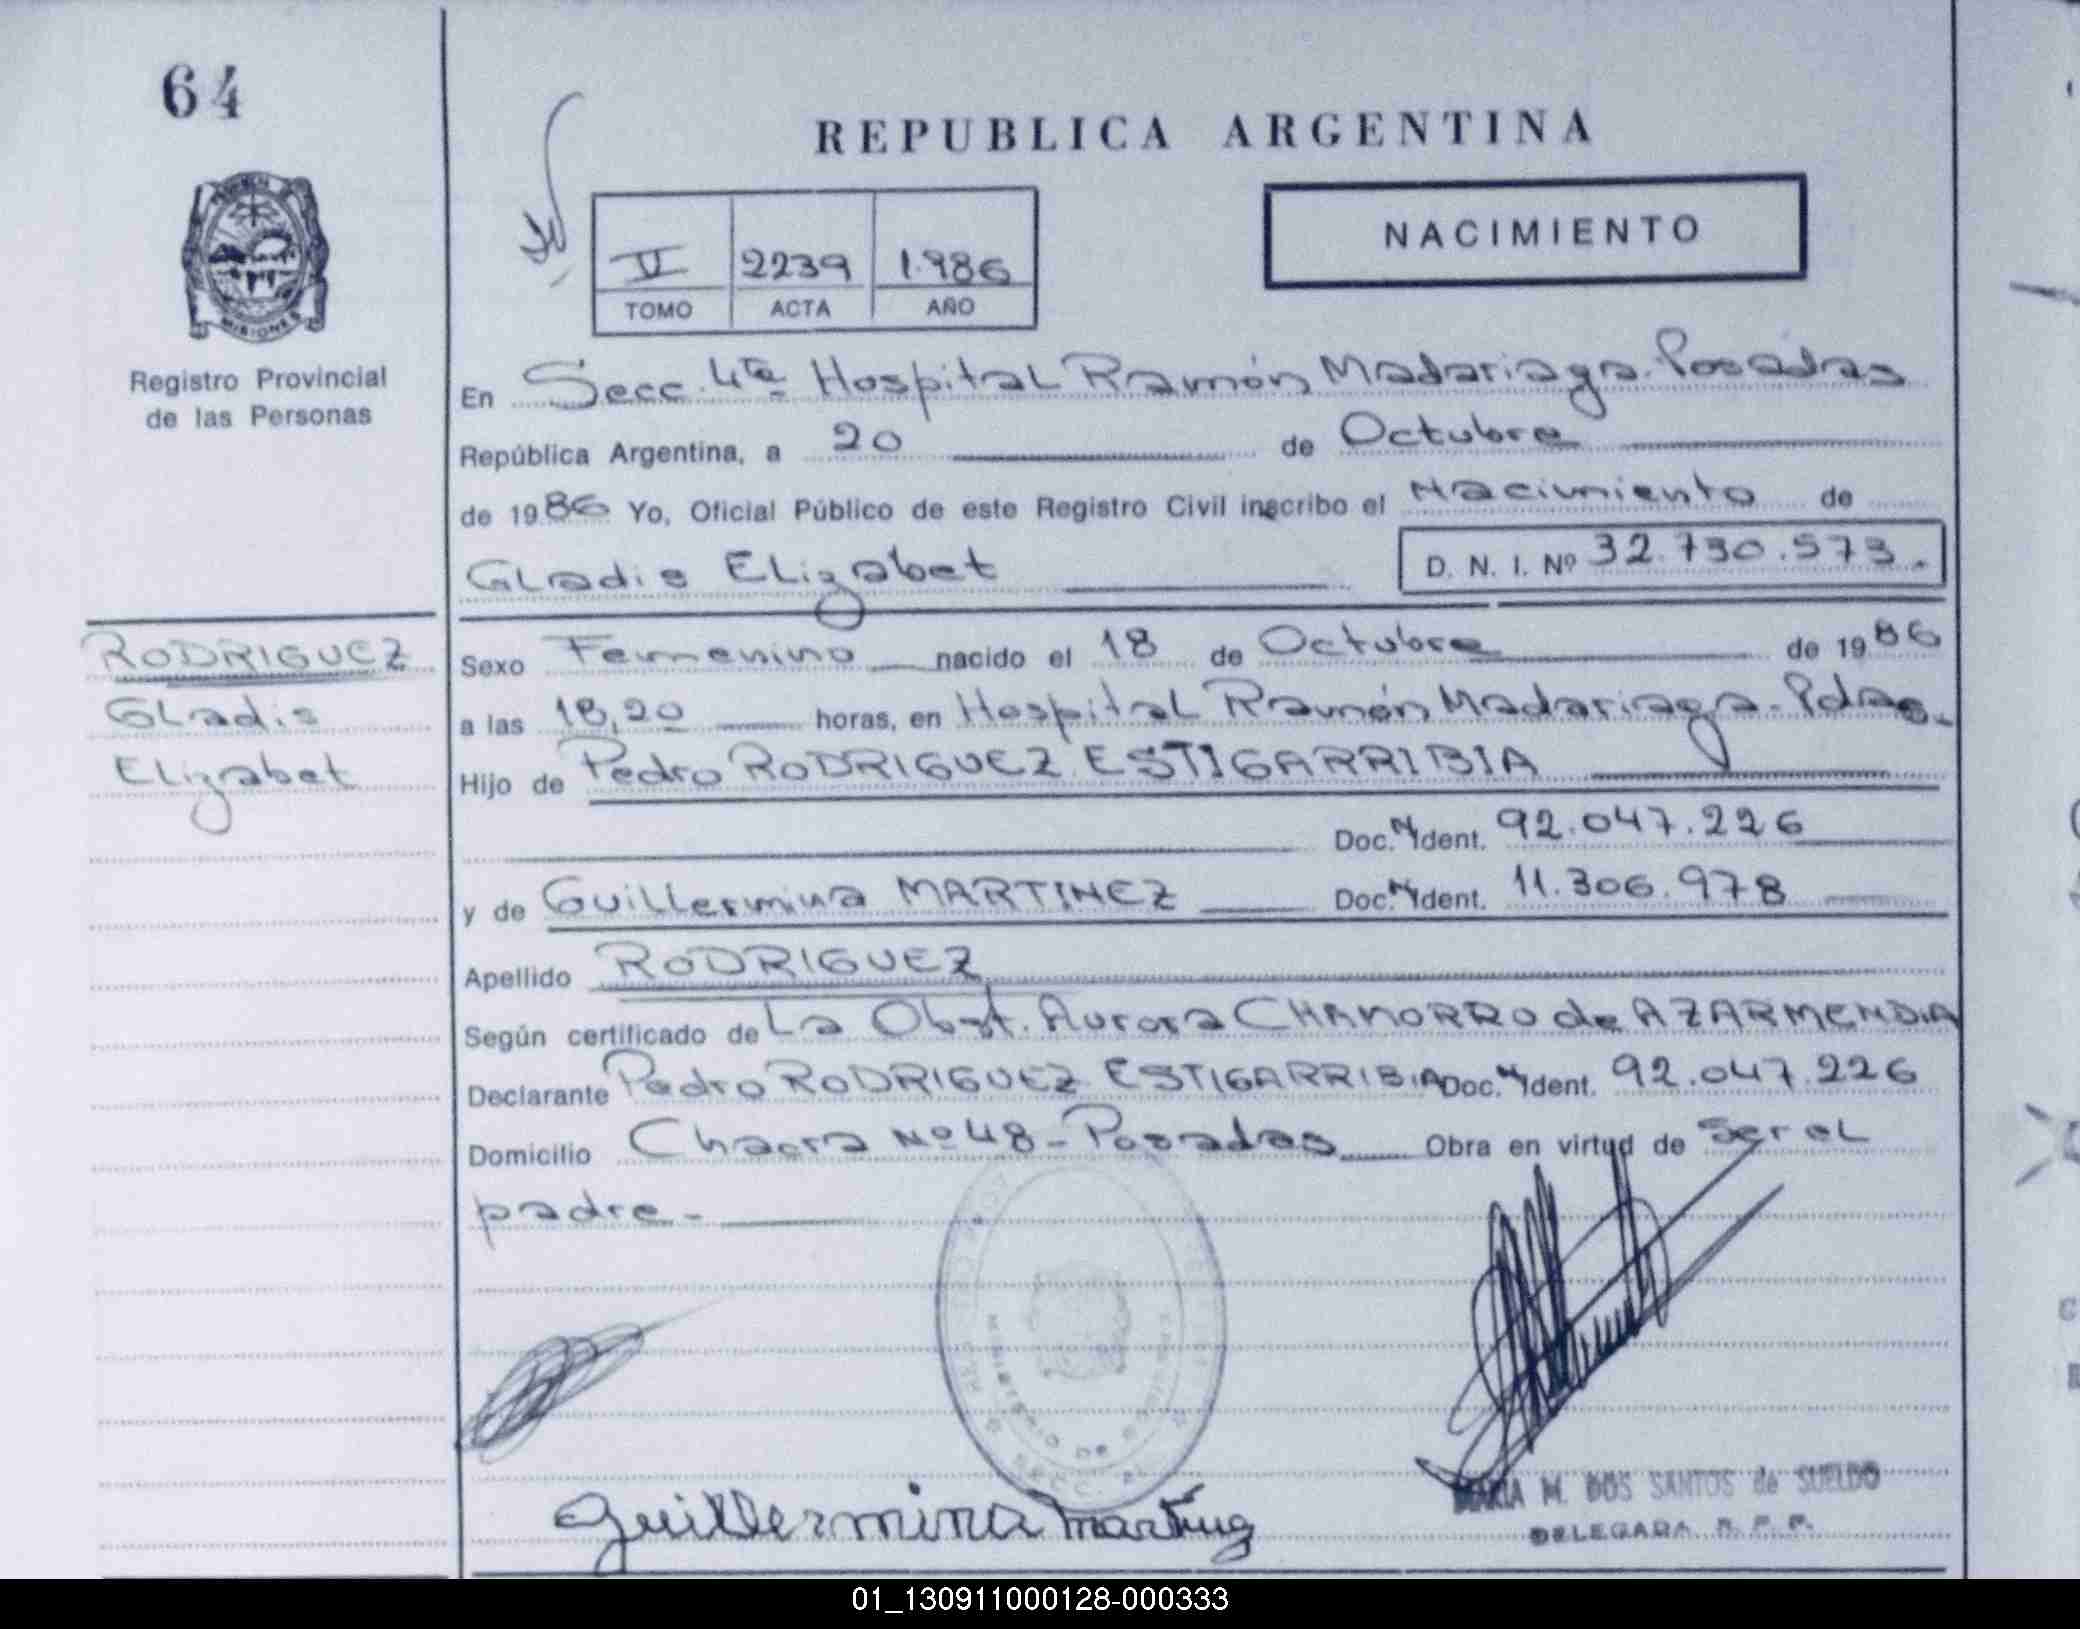 64
REPUBLICA ARGENTINA
NACIMIENTO
V 2239 1.986
TOMO ACTA AÑO
MISIONES
Registro Provincial
de las Personas
En Secc. 4ta Hospital Ramón Madariaga. Posadas
República Argentina, a 20 de Octubre
de 1986 Yo, Oficial Público de este Registro Civil inscribo el Nacimiento de
Gladis Elizabet D. N. I. Nº 32.730.573.
RODRIGUEZ
Gladis
Elizabet
Sexo Femenino nacido el 18 de Octubre de 1986
a las 18,20 horas, en Hospital Ramón Madariaga - Pdas.
Hijo de Pedro RODRIGUEZ ESTIGARRIBIA
Doc. Ident. 92.047.226
y de Guillermina MARTINEZ Doc. Ident. 11.306.978
Apellido RODRIGUEZ
Según certificado de La Obst. Aurora CHAMORRO de AZARMENDIA
Declarante Pedro RODRIGUEZ ESTIGARRIBIA Doc. Ident. 92.047.226
Domicilio Chacra Nº 48 - Posadas Obra en virtud de Ser el
padre -
MINISTERIO DE
SECC. 4
Guillermina Martinez
MARIA M. DOS SANTOS de SUELDO
DELEGADA R. P. P.
01_130911000128-000333